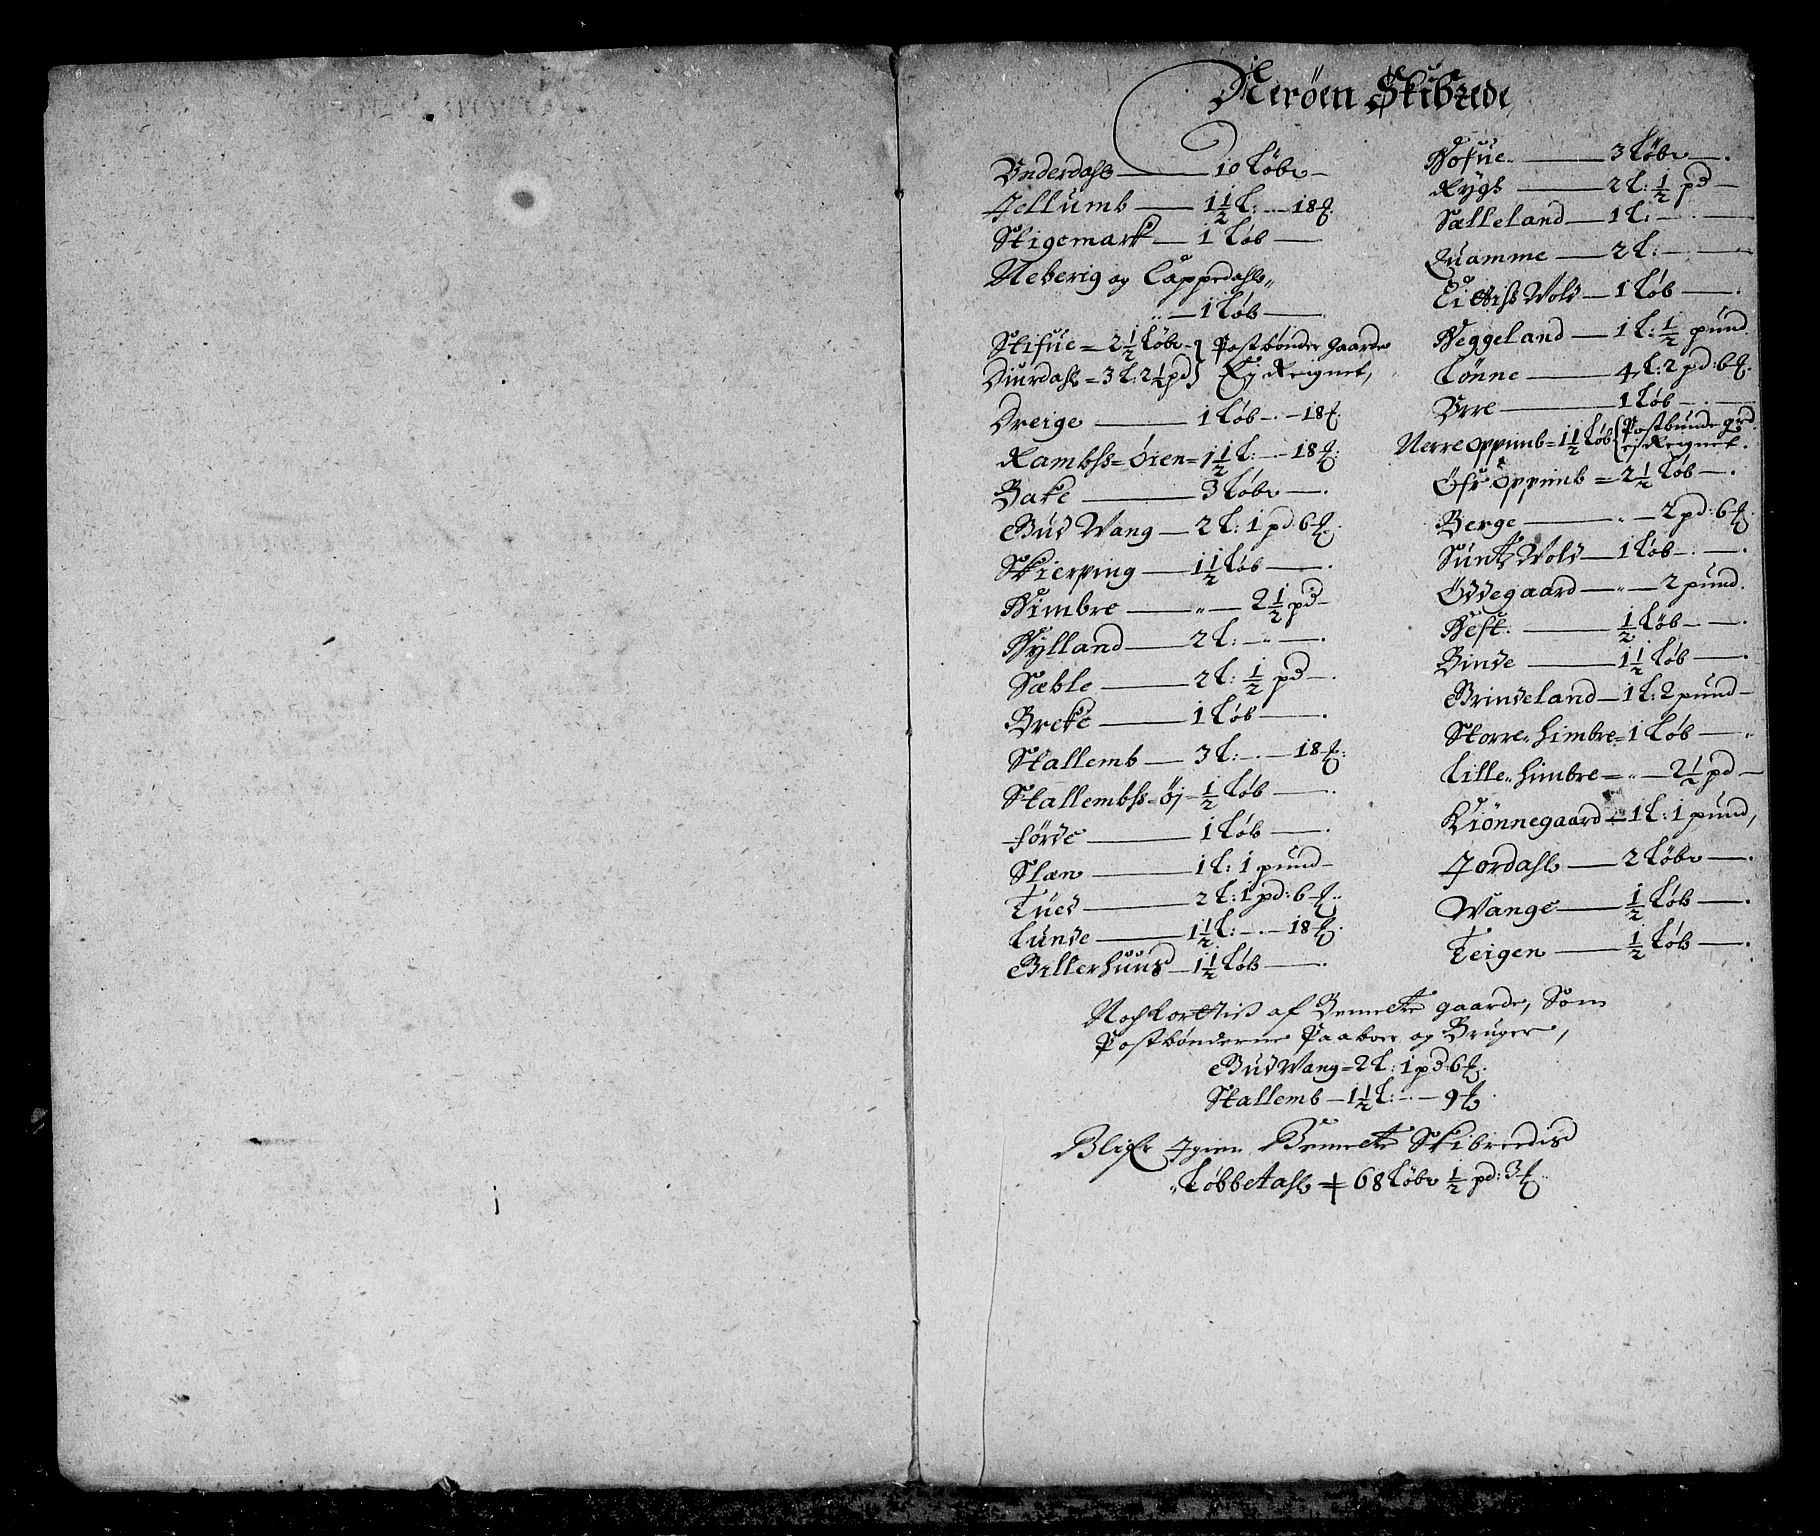 Nerøen Skibrede
Underdahl — 10 Løbe —
Jellumb — 1½ L: — 18 ℔.
Stigemark — 1 Løb —
Neberig og Cappedahl„
„ — 1 Løb —
Stifue = 2½ Løbe } Postbønder gaarde
Diurdahl = 3 L: 2¼ pd } Ej Reignet,
Dreige — 1 Løb — 18 ℔.
Rambss = Øien = 1½ L: — 18 ℔.
Bake — 3 Løbe —
Gudvang — 2 L: 1 pd: 6 ℔.
Skierping — 1½ Løb —
Himbre — „ — 2½ pd —
Hylland — 2 L: — „ —
Sæble — 2 L: ½ pd —
Breke — 1 Løb —
Stallemb — 3 L: — 18 ℔:
Stallembss = Øj — ½ Løb —
Førde — 1 Løb —
Slæn — 1 L: 1 pund —
Tued — 2 L: 1 pd: 6 ℔.
Lunde — 1½ L: — 18 ℔.
Gillerhuus — 1½ Løb —
Hofue — 3 Løbe —
Rygh — 2 L: ½ pd —
Sælleland — 1 L: —
Quamme — 2 L: —
Wold — 1 Løb —
Heggeland — 1 L: ½ pund
Lønne — 4 L: 2 pd: 6 ℔.
Urre — 1 Løb —
Nerre Oppimb = 1½ Løb { Postbunde grd. ej Reignet.
Øfr Oppimb = 2½ Løb —
Berge — „ — 2 pd: 6 ℔.
Sundt Wold — 1 Løb —
Øddegaard — „ — 2 pund.
Heft. — ½ Løb —
Binde — 1½ Løb —
Grindeland — 1 L: 2 pund —
Storre„ himbre = 1 Løb —
Lille„ himbre = „ — 2½ pd —
Kiønnegaard — 1 L: 1 pund,
Jordahl — 2 Løbe —
Wange — ½ Løb —
Teigen — ½ Løb —
af Bemelte gaarde, Som
Postbønderne Paaboer og Bruger,
Gudvang = 2 L: 1 pd: 6 ℔.
Stallemb — 1½ L: — 9 ℔
Blifr Igien Bemelte Skibredis
„Løbbetahl = 68 Løbe ½ pd: 3 ℔.